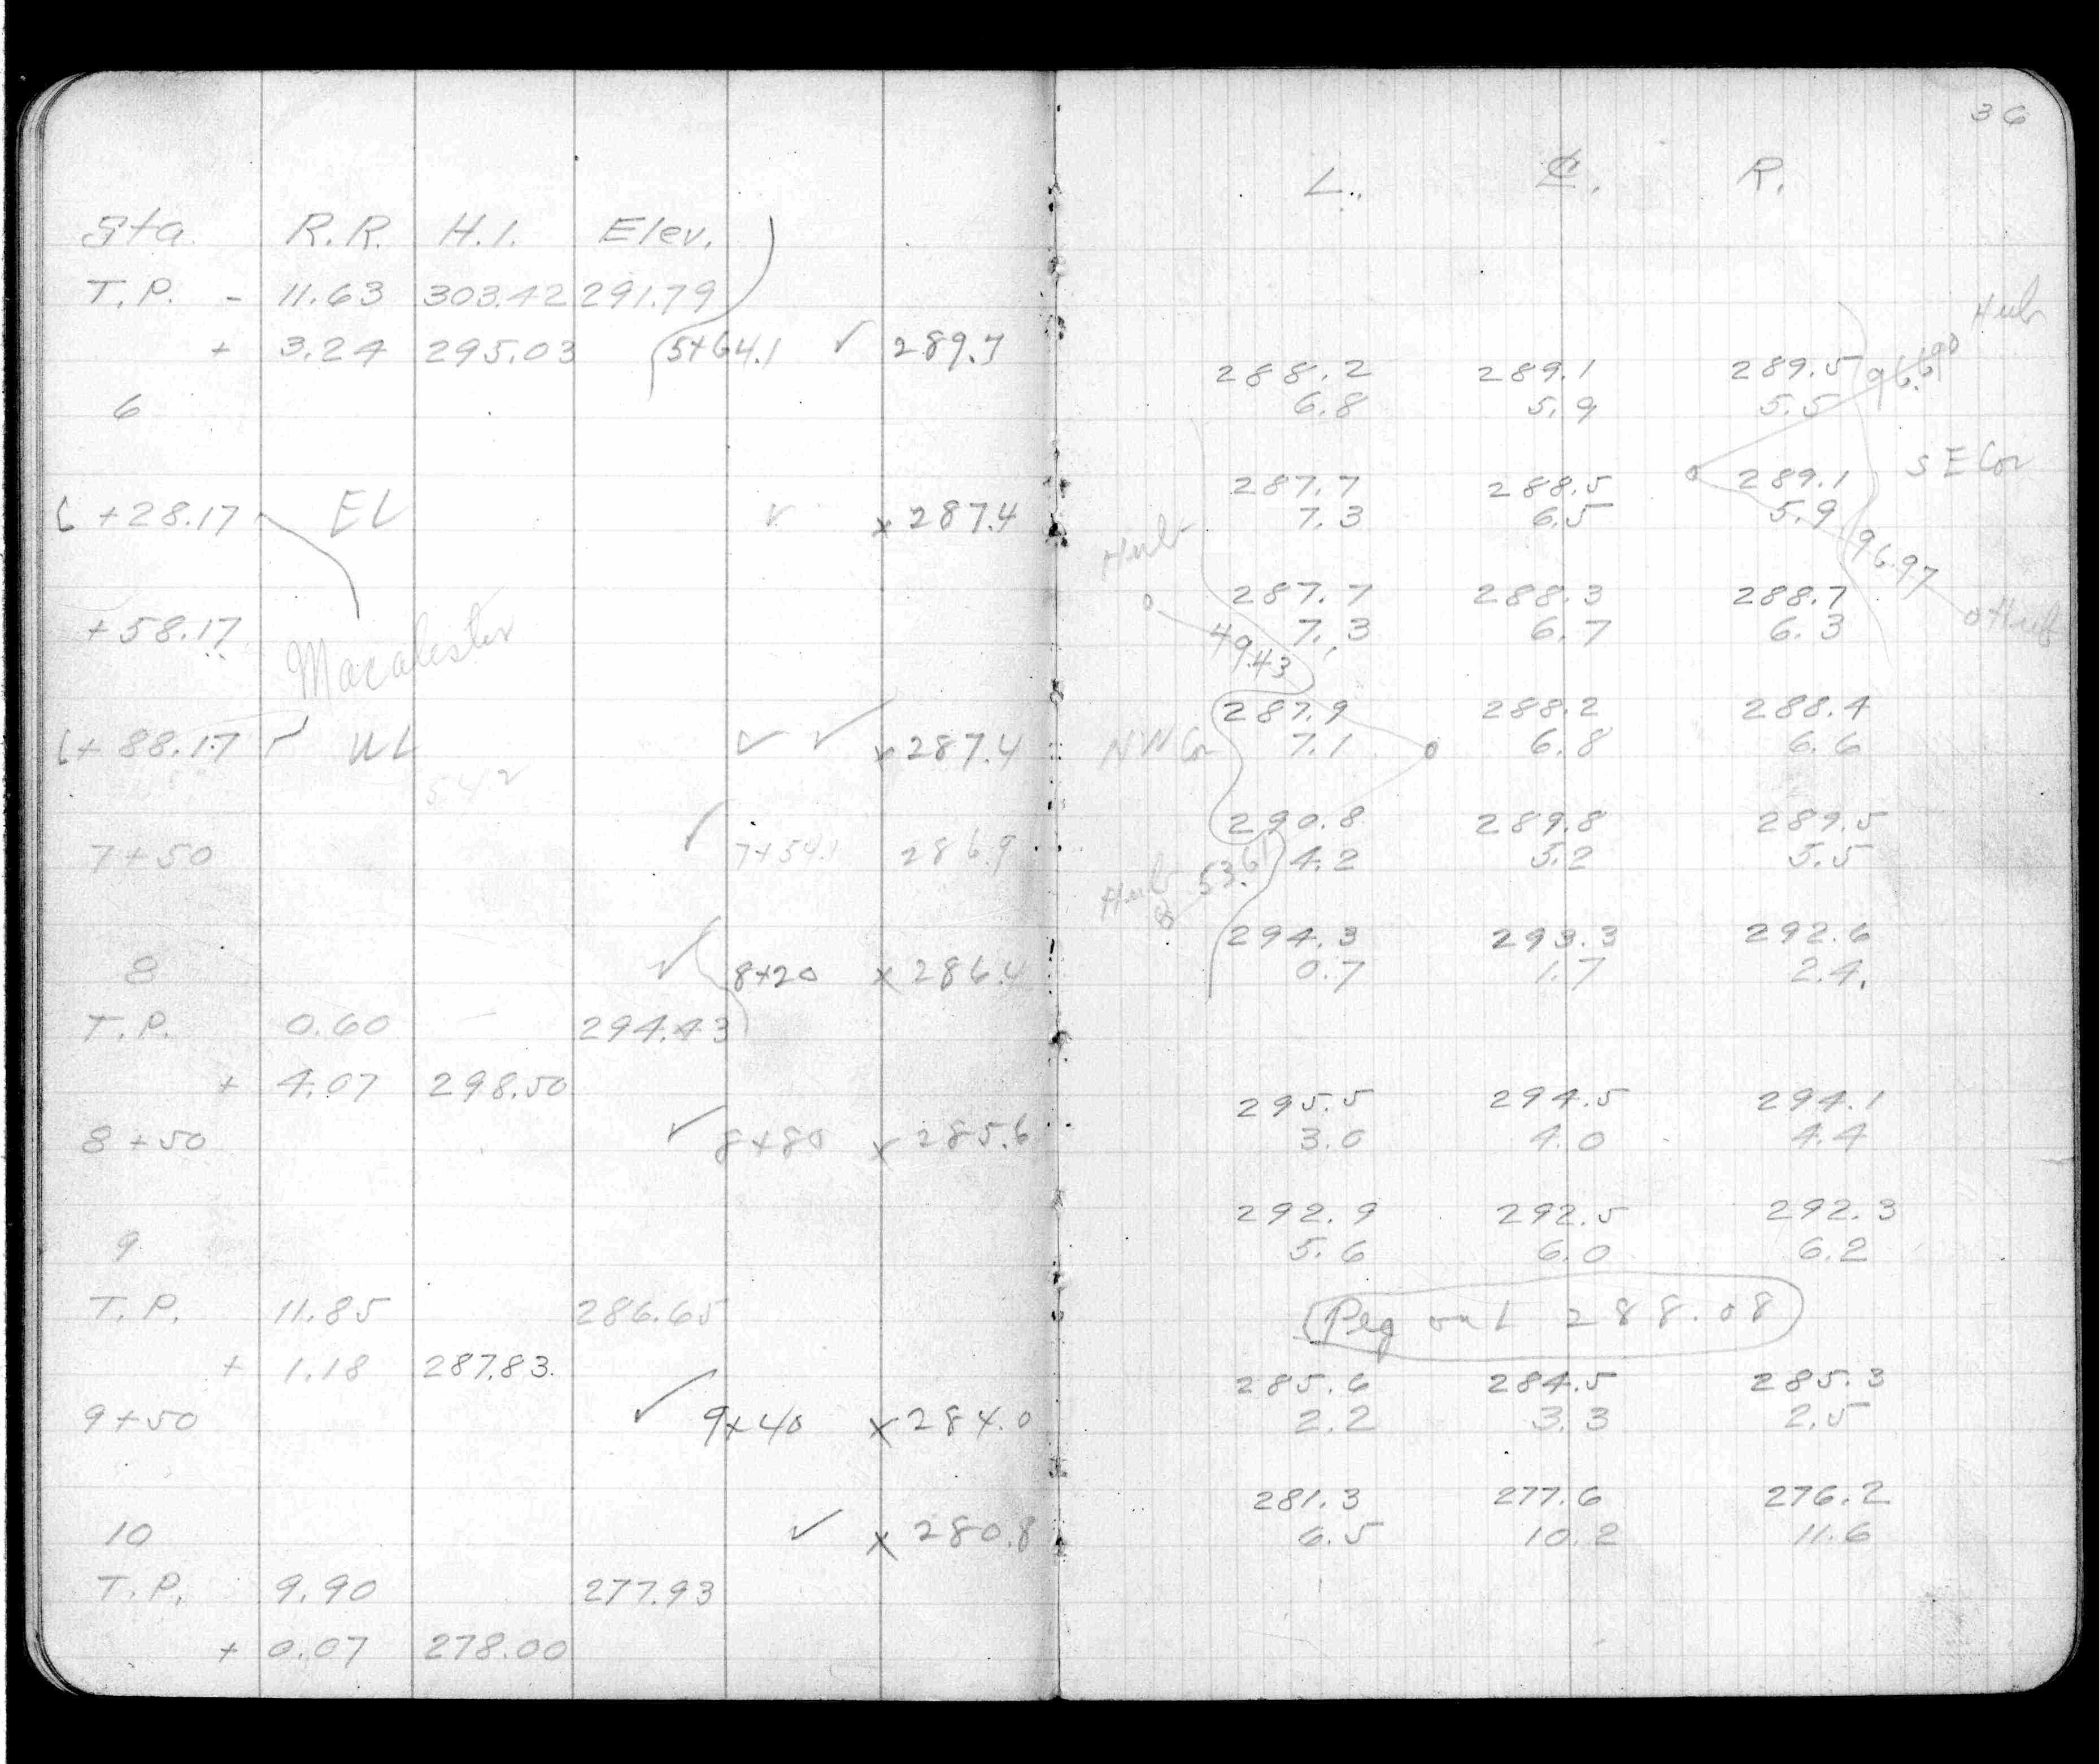 Sta. R.R. H.I. Elev.
T.P. - 11.63 303.42 291.79
+ 3.24 295.03 5+64.1 ✓ 289.7
6
6+28.17 EL ✓ x 287.4
+58.17
Macalester
6+88.17 WL ✓ ✓ x 287.4
542
7+50 ✓ 7+54.1 286.9
8 ✓ 8+20 x 286.4
T.P. 0.60 — 294.43
+ 4.07 298.50
8+50 ✓ 8+80 x 285.6
9
T.P. 11.85 286.65
+ 1.18 287.83
9+50 ✓ 9+40 x 284.0
10 ✓ x 280.8
T.P. 9.90 277.93
+ 0.07 278.00
36
L. ℄. R.
Hub
288.2 289.1 289.5 96.690
6.8 5.9 5.5
S E Cor
287.7 288.5 289.1
7.3 6.5 5.9
Hub 96.97
287.7 288.3 288.7
7.3 6.7 6.3 Hub
49.43
287.9 288.2 288.4
N W Cor 7.1 6.8 6.6
290.8 289.8 289.5
4.2 5.2 5.5
Hub 53.61
294.3 293.3 292.6
0.7 1.7 2.4.
295.5 294.5 294.1
3.0 4.0 4.4
292.9 292.5 292.3
5.6 6.0 6.2
Peg on L 288.08
285.6 284.5 285.3
2.2 3.3 2.5
281.3 277.6 276.2
6.5 10.2 11.6